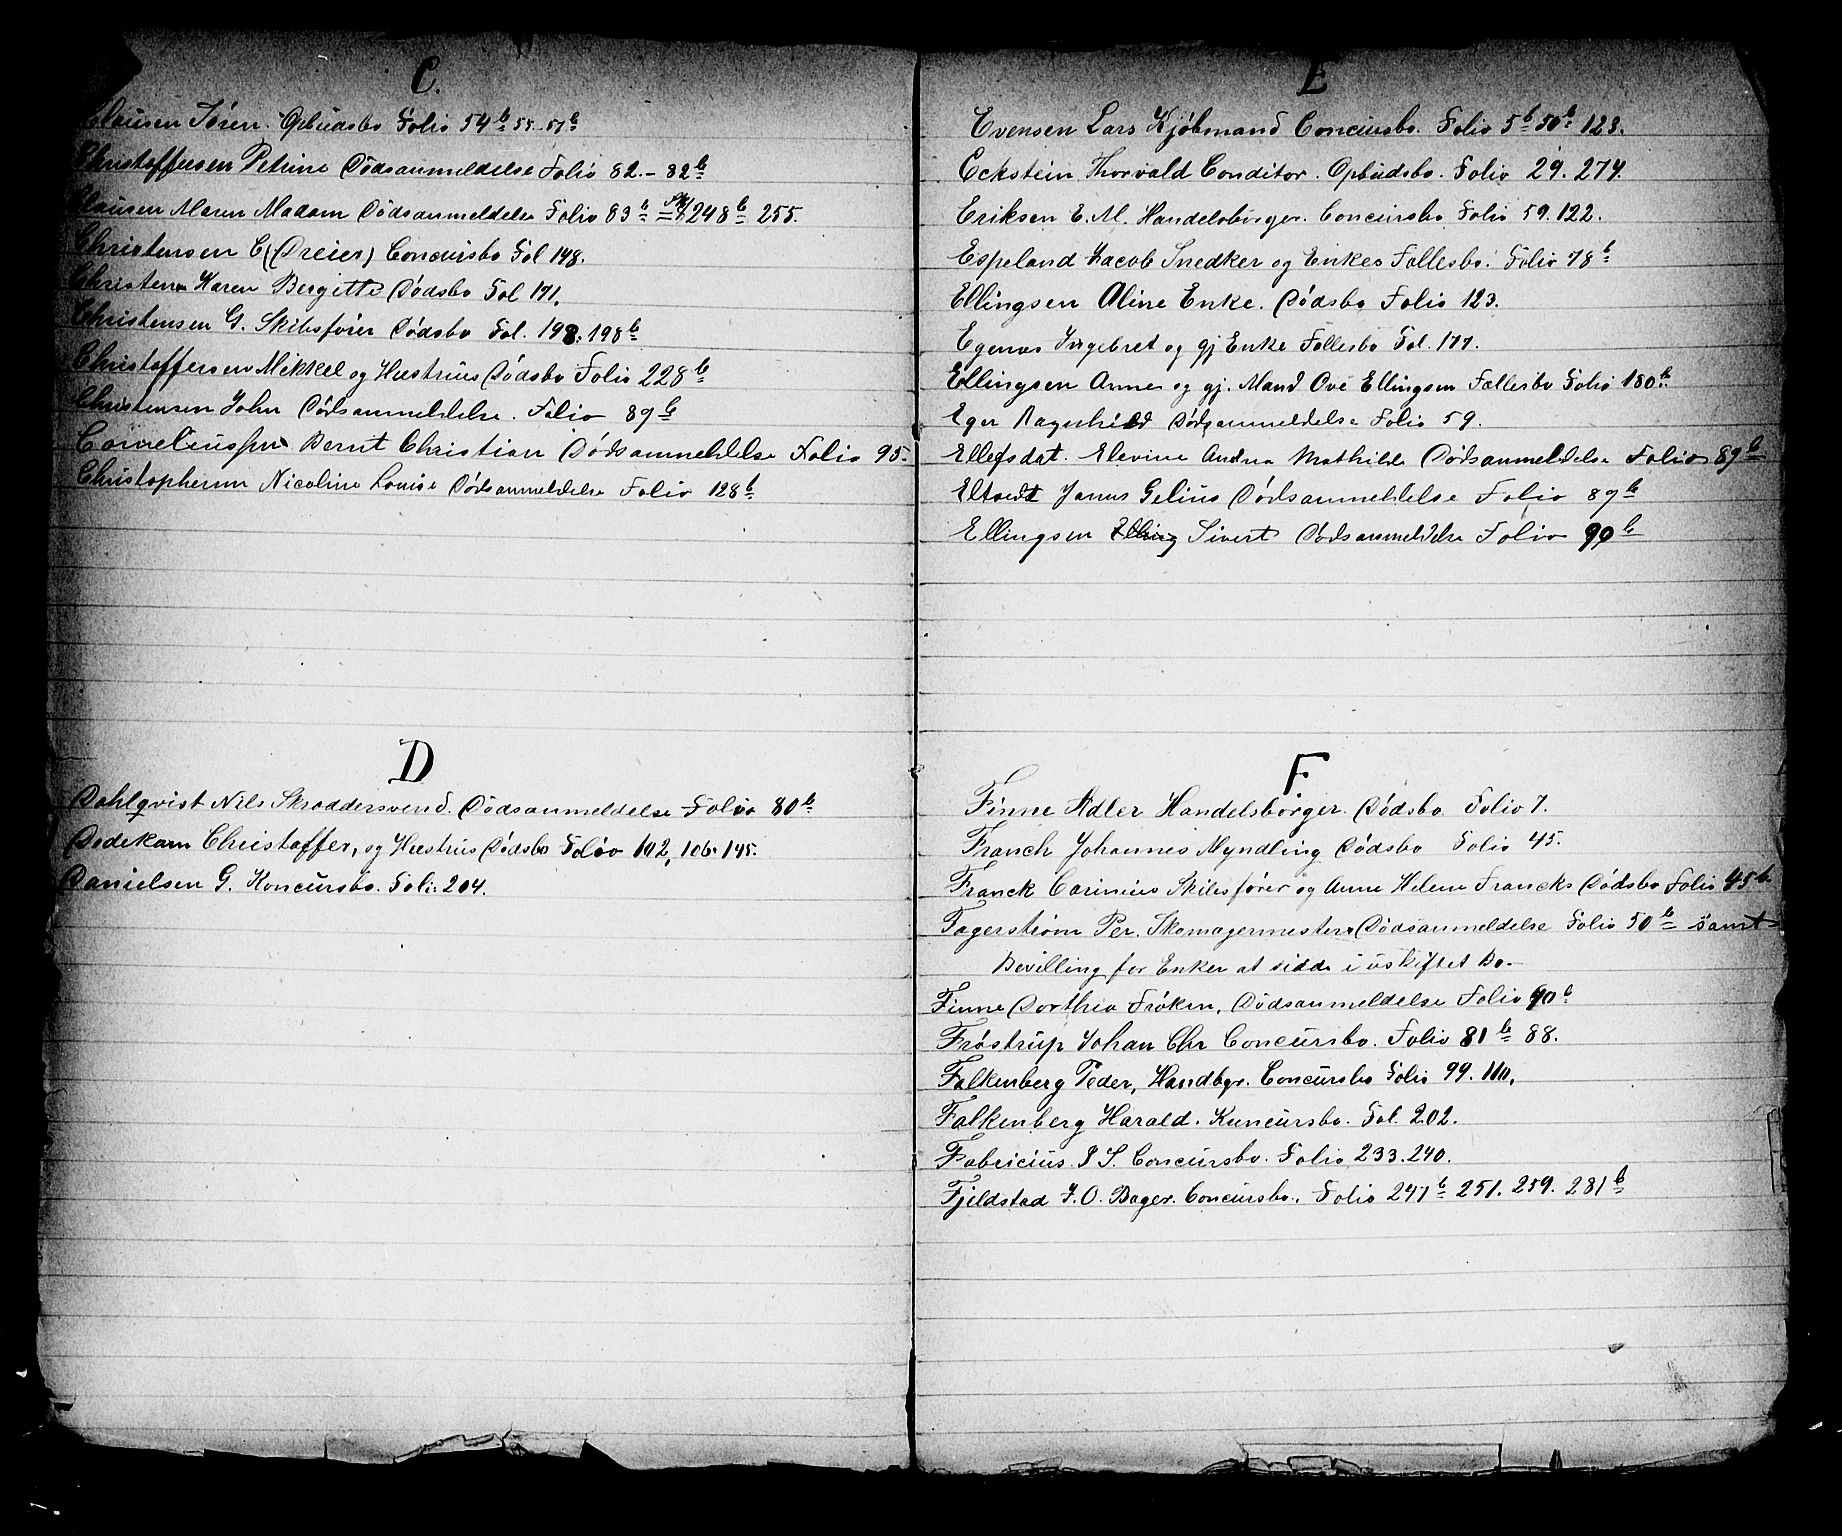 C.
Clausen Sören. Opbudsbo Folio 54b 55-57b
Christoffersen Petrine Dödsanmeldelse Folio 82.- 82b
Clausen Maren Madam Dödsanmeldelse Folio 83b 248b 255.
Christensen C (Dreier) Concursbo Fol 148.
Christensen Karen Bergitte Dödsbo Fol 171.
Christensen G. Skibsfører Dödsbo Fol. 198. 198b
Christoffersen Mikkel og Hustrus Dödsbo Folio 228b
Christensen John Dödsanmeldelse. Folio 89b
Corneliussen Bernt Christian Dödsanmeldelse Folio 95.
Christophersen Nicoline Louise Dødsanmeldelse Folio 128b
D
Dahlqvist Nils Skraddersvend. Dödsanmeldelse Folio 80b
Dedekam Christoffer, og Hustrus Dödsbo Folio 102, 106. 145.
Danielsen G. Koncursbo. Foli: 204.
E
Evensen Lars Kjøbmand Concursbo. Folio 5b 50b 123.
Eckstein Thorvald Conditor. Opbudsbo. Folio 29. 274.
Eriksen E. M. Handelsborger. Concursbo Folio 59. 122.
Espeland Jacob Snedker og Enkes Fallesbo. Folio 78b
Ellingsen Oline Enke. Dödsbo Folio 123.
Egenæs Ingebret og gj Enke Fællesbo Fol. 177.
Ellingsen Anne og gj. Mand Ove Ellingsen Fællesbo Folio 180b
Eger Ragnhild Dödsanmeldelse Folio 59.
Ellefsdat. Elevine Andrea Mathilde Dödsanmeldelse Folio 89b
Eltvedt Janus Gelius Dödsanmeldelse Folio 89b
Ellingsen Elling Sivert Dödsanmeldelse Folio 90b
F.
Finne Adler Handelsborger. Dödsbo. Folio 7.
Franck Johannes Myndling Dödsbo Folio 45.
Franck Carinius Skibsfører og Anne Helene Francks Dödsbo Folio 45b
Fagerstrøm Per. Skomagermester. Dödsanmeldelse Folio 50b samt
Bevilling for Enken at sidde i uskiftet Bo.
Finne Dorthea Frøken, Dödsanmeldelse Folio 90b
Frøstrup Johan Chr Concursbo. Folio 81b 88.
Falkenberg Peder, Handbgr. Concursbo Folio 99. 110.
Falkenberg Harald. Kuncursbo. Fol. 202.
Fabricius. P S. Concursbo. Folio 233. 240.
Fjeldstad J. O. Bager. Concursbo. Folio 247b 251. 259. 281b